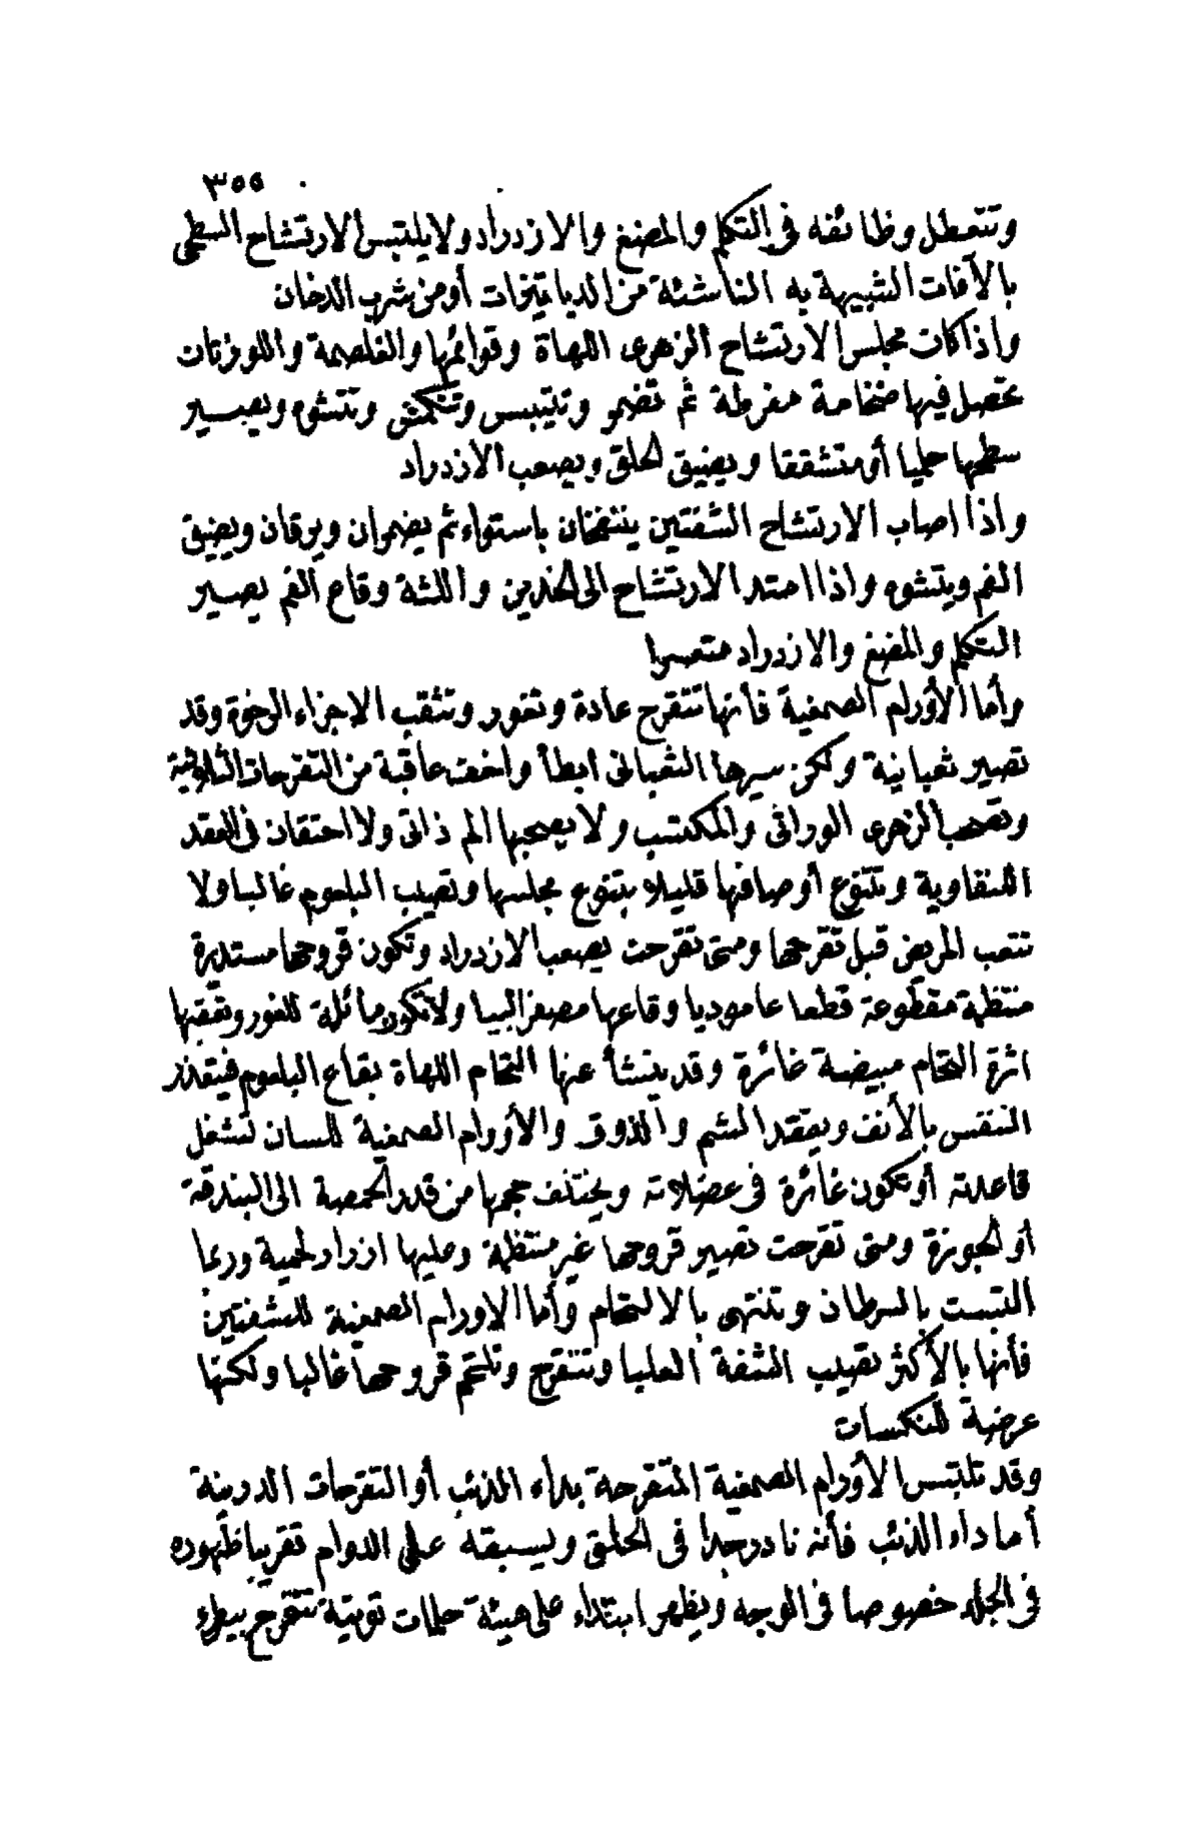 ٣٥٥
وتتعطل وظائفه في التكلم والمضغ والازدراد ولا يلتبس الارتشاح السطحى
بالآفات الشبيهة به الناشئة من الديابتيزات أو من شرب الدخان
واذا كان مجلس الارتشاح الزهرى اللهاة وقوائمها والغلصمة واللوزتان
تحصل فيها ضخامة مفرطة ثم تضمر وتتيبس وتنكمش وتتشوه ويصير
سطحها حلميا أو متشققا ويضيق الحلق ويصعب الازدراد
واذا اصاب الارتشاح الشفتين ينتفخان باستواء ثم يضمران ويرقان ويضيق
الفم ويتشوه واذا امتد الارتشاح الى الخدين واللثة وقاع الفم يصير
التكلم والمضغ والازدراد متعسرا
وأما الأورام الصمغية فأنها تتقرح عادة وتغور وتثقب الاجزاء الرخوة وقد
تصير ثعبانية ولكن سيرها الثعبانى ابطأ واخف عاقبة من التقرحات الثلاثية
وتصحب الزهرى الوراثى والمكتسب ولا يصحبها الم ذاتى ولا احتقان فى العقد
اللنفاوية وتتنوع أوصافها قليلا بتنوع مجلسها وتصيب البلعوم غالبا ولا
تتعب المريض قبل تقرحها ومتى تقرحت يصعب الازدراد وتكون قروحها مستديرة
منتظمة مقطوعة قطعا عاموديا وقاعها مصفر البيا ولا تكون مائلة للغور وتعقبها
اثرة التحام مبيضة غائرة وقد ينشأ عنها التحام اللهاة بقاع البلعوم فيتعذر
التنفس بالأنف ويفقد الشم والذوق والأورام الصمغية للسان تشغل
قاعدته أو تكون غائرة فى عضلاته ويختلف حجمها من قدر الحمصة الى البندقة
أو الجوزة ومتى تقرحت تصير قروحها غير منتظمة وعليها ازرار لحمية وربما
التبست بالسرطان وتنتهى بالالتحام وأما الاورام الصمغية للشفتين
فأنها بالأكثر تصيب الشفة العليا وتتقرح وتلتحم قروحها غالبا ولكنها
عرضية للنكسات
وقد تلتبس الأورام الصمغية المتقرحة بداء الذئب أو التقرحات الدرنية
أما داء الذئب فأنه نادر جدا فى الحلق ويسبقه على الدوام تقريبا ظهوره
فى الجلد خصوصا فى الوجه ويظهر ابتداء على هيئة حلمات توتية تتقرح ببطء